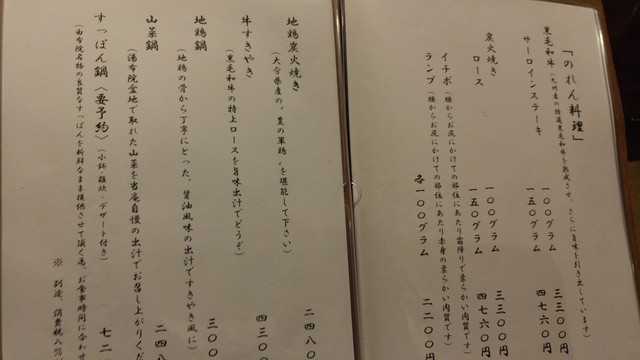 「のれん料理」
黒毛和牛(九州産の特選黒毛和牛を熟成させ、さらに旨味を引き出しています)
サーロインステーキ
一〇〇グラム 三三〇〇円
一五〇グラム 四七六〇円
炭火焼き
ロース
一〇〇グラム 三三〇〇円
一五〇グラム 四七六〇円
イチボ(腰からお尻にかけての部位にあたり霜降りで柔らかい肉質です)
ランプ(腰からお尻にかけての部位にあたり赤身の柔らかい肉質です)
各一〇〇グラム 二二〇〇円
地鶏炭火焼き
(大分県産の〝豊の軍鶏〟を堪能して下さい)
二四八〇
牛すきやき
(黒毛和牛の特上ロースを旨味出汁でどうぞ)
四三〇〇
地鶏鍋
(地鶏の骨から丁寧にとった、醤油風味の出汁ですきやき風に)
三〇〇
山菜鍋
(湯布院盆地で取れた山菜を当庵自慢の出汁でお召し上がりくだ
二四八
すっぽん鍋〈要予約〉(小鉢・雑炊・デザート付き)
七二
(由布院名物の良質なすっぽんを新鮮なまま提供させて頂く為、お食事時間に合わせ
※ 別途、消費税八%